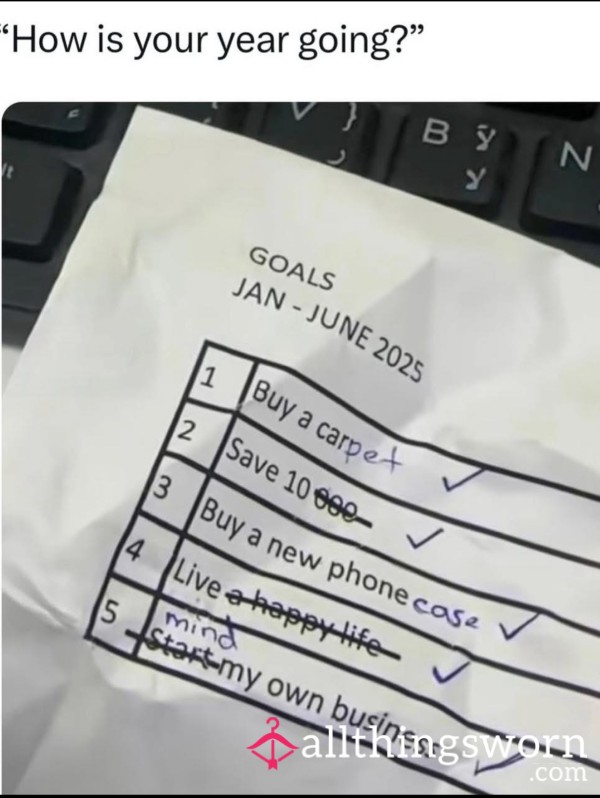 “How is your year going?”
GOALS
JAN - JUNE 2025
1 Buy a carpet ✓
2 Save 10 000 ✓
3 Buy a new phone case ✓
4 Live a happy life ✓
mind
5 Start my own business ✓
allthingsworn
.com
B
N